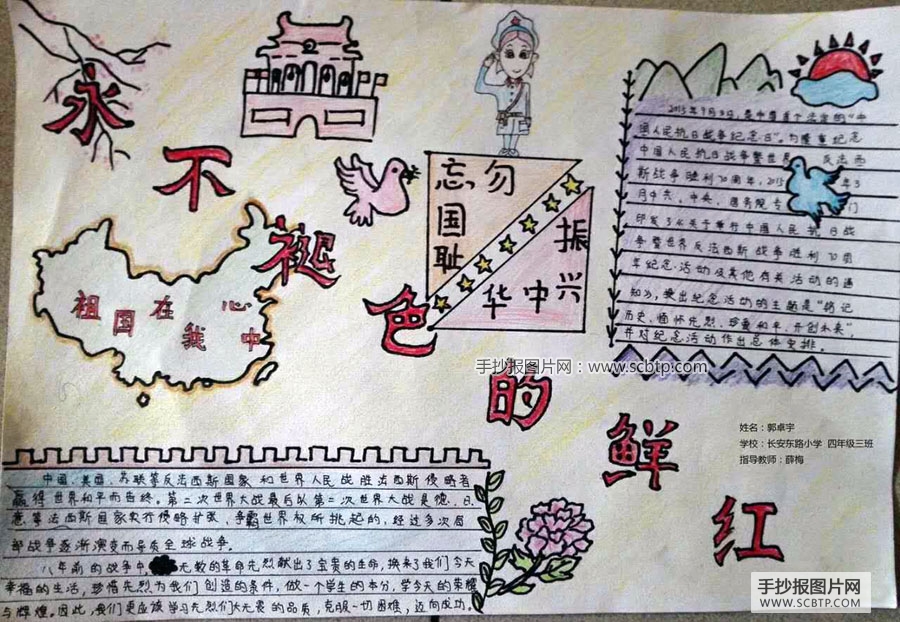 永
不
褪
色
的
鲜
红
勿忘
国
耻
振
兴中华
祖国在我心中
2015年9月3日,是中
国人民抗日战争纪念日”。为隆重纪念
中国人民抗日战争暨世界反法西
斯战争胜利70周年,2015年3
月中共中央、国务院
印发了《关于举行中国人民抗日战
争暨世界反法西斯战争胜利70周
年纪念活动及其他有关活动的通
知》,提出纪念活动的主题是“铭记
历史、缅怀先烈、珍爱和平、开创未来”,
并对纪念活动作出总体安排。
手抄报图片网:www.scbtp.com
姓名:郭卓宇
学校:长安东路小学 四年级三班
指导教师:薛梅
中国、美国、苏联等反法西斯国家和世界人民战胜法西斯侵略者
赢得世界和平而告终。第二次世界大战最后以第二次世界大战是德、日、
意等法西斯国家实行侵略扩张,争霸世界权所挑起的,经过多次局
部战争逐渐演变而导质全球战争。
八年前的战争中,无数的革命先烈献出了宝贵的生命,换来了我们今天
幸福的生活,珍惜先烈为我们创造的条件,做一个学生的本分,学今天的荣耀
与辉煌。因此,我们更应该学习先烈们大无畏的品质,克服一切困难,迈向成功。
手抄报图片网
SCBTP.COM